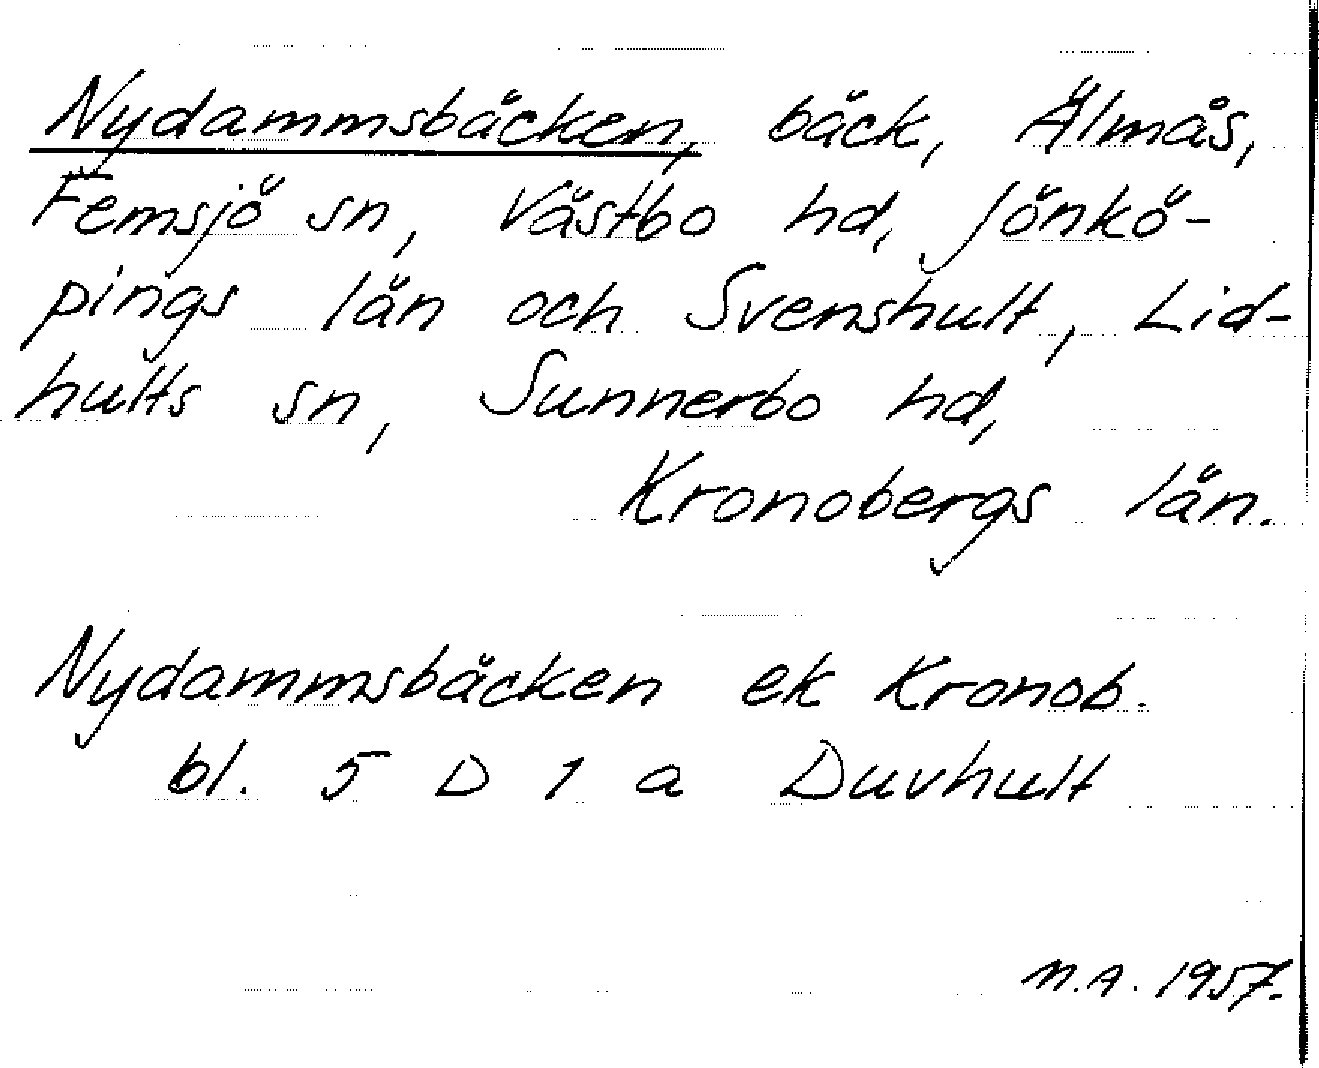 Nydammsbäcken, bäck, Älmås,
Femsjö sn, Västbo hd, Jönkö-
pings län och Svenshult, Lid-
hults sn, Sunnerbo hd,
Kronobergs län.
Nydammsbäcken ek Kronob.
bl. 5 D 1 a Duvhult
M.A. 1957.